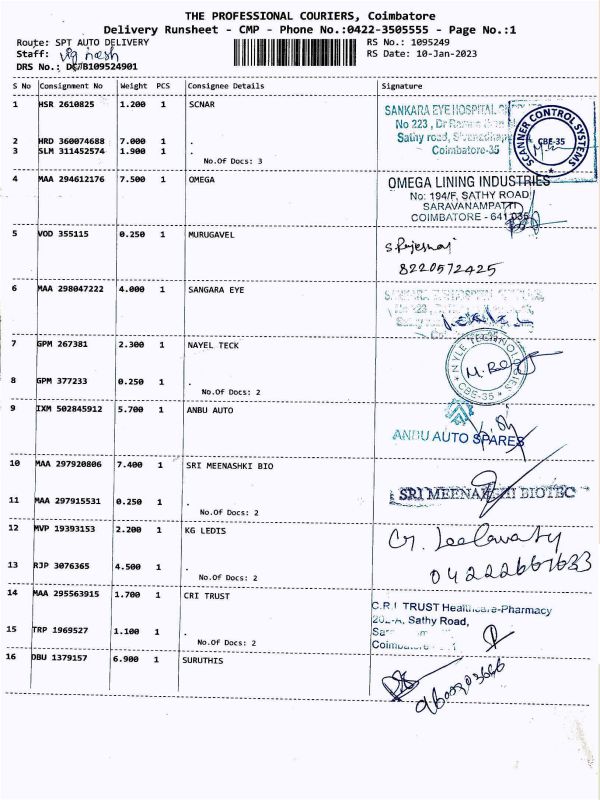 THE PROFESSIONAL COURIERS, Coimbatore
Delivery Runsheet - CMP - Phone No.:0422-3505555 - Page No.:1
Route: SPT AUTO DELIVERY
RS No.: 1095249
Staff:
RS Date: 10-Jan-2023
DRS No.: DC/B109524901
S No Consignment No Weight PCS Consignee Details Signature
1 HSR 2610825 1.200 1 SCNAR
SANKARA EYE HOSPITAL
No 223, Dr
Sathy road,
Coimbatore-35
SCANNER CONTROL SYSTEMS
CBE-35
2 HRD 360074688 7.000 1 .
3 SLM 311452574 1.900 1 .
No.Of Docs: 3
4 MAA 294612176 7.500 1 OMEGA
OMEGA LINING INDUSTRIES
No: 194/F, SATHY ROAD
SARAVANAMPATTI
COIMBATORE - 641 035
5 VOD 355115 0.250 1 MURUGAVEL
8220572425
6 MAA 298047222 4.000 1 SANGARA EYE
7 GPM 267381 2.300 1 NAYEL TECK
NYLE TECHNOLOGIES
CBE-35
8 GPM 377233 0.250 1 .
No.Of Docs: 2
9 IXM 502845912 5.700 1 ANBU AUTO
ANBU AUTO SPARES
10 MAA 297920806 7.400 1 SRI MEENASHKI BIO
SRI MEENAKSHI BIOTEC
11 MAA 297915531 0.250 1 .
No.Of Docs: 2
12 MVP 19393153 2.200 1 KG LEDIS
13 RJP 3076365 4.500 1 .
No.Of Docs: 2
14 MAA 295563915 1.700 1 CRI TRUST
C.R.I. TRUST Healthcare-Pharmacy
Sathy Road,
15 TRP 1969527 1.100 1 .
No.Of Docs: 2
16 DBU 1379157 6.900 1 SURUTHIS